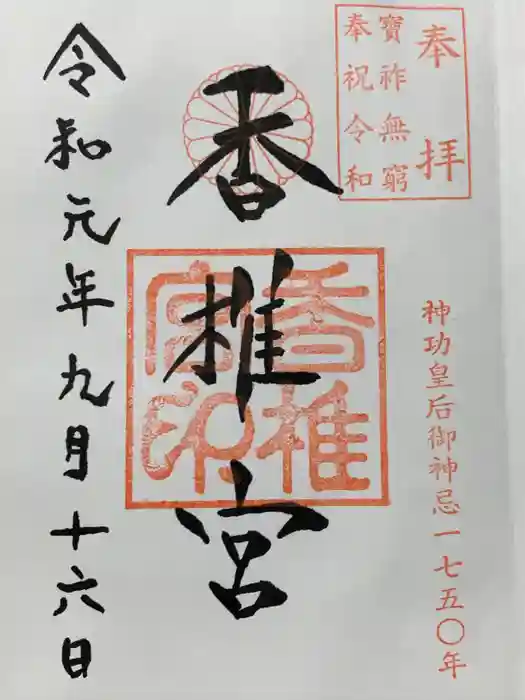 奉拝
寶祚無窮
奉祝令和
神功皇后御神忌一七五〇年
香椎宮
香椎宮印
令和元年九月十六日